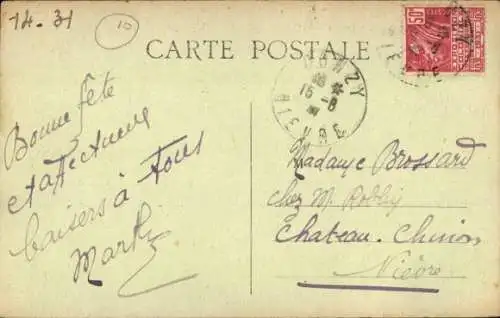 14.31
10
CARTE POSTALE
50c
15 - 8
31
Bonne fête
et affectueux
baisers à tous
Marthe
Madame Brossard
chez M.
Chateau-Chinon
Nièvre